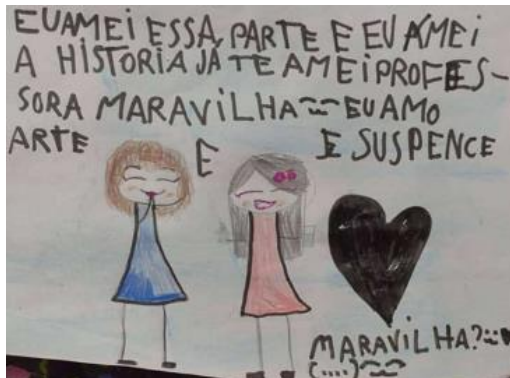 EU AMEI ESSA PARTE E EU AMEI
A HISTORIA JÁ TE AMEI PROFES-
SORA MARAVILHA EU AMO
ARTE E E SUSPENCE
MARAVILHA?
(....)